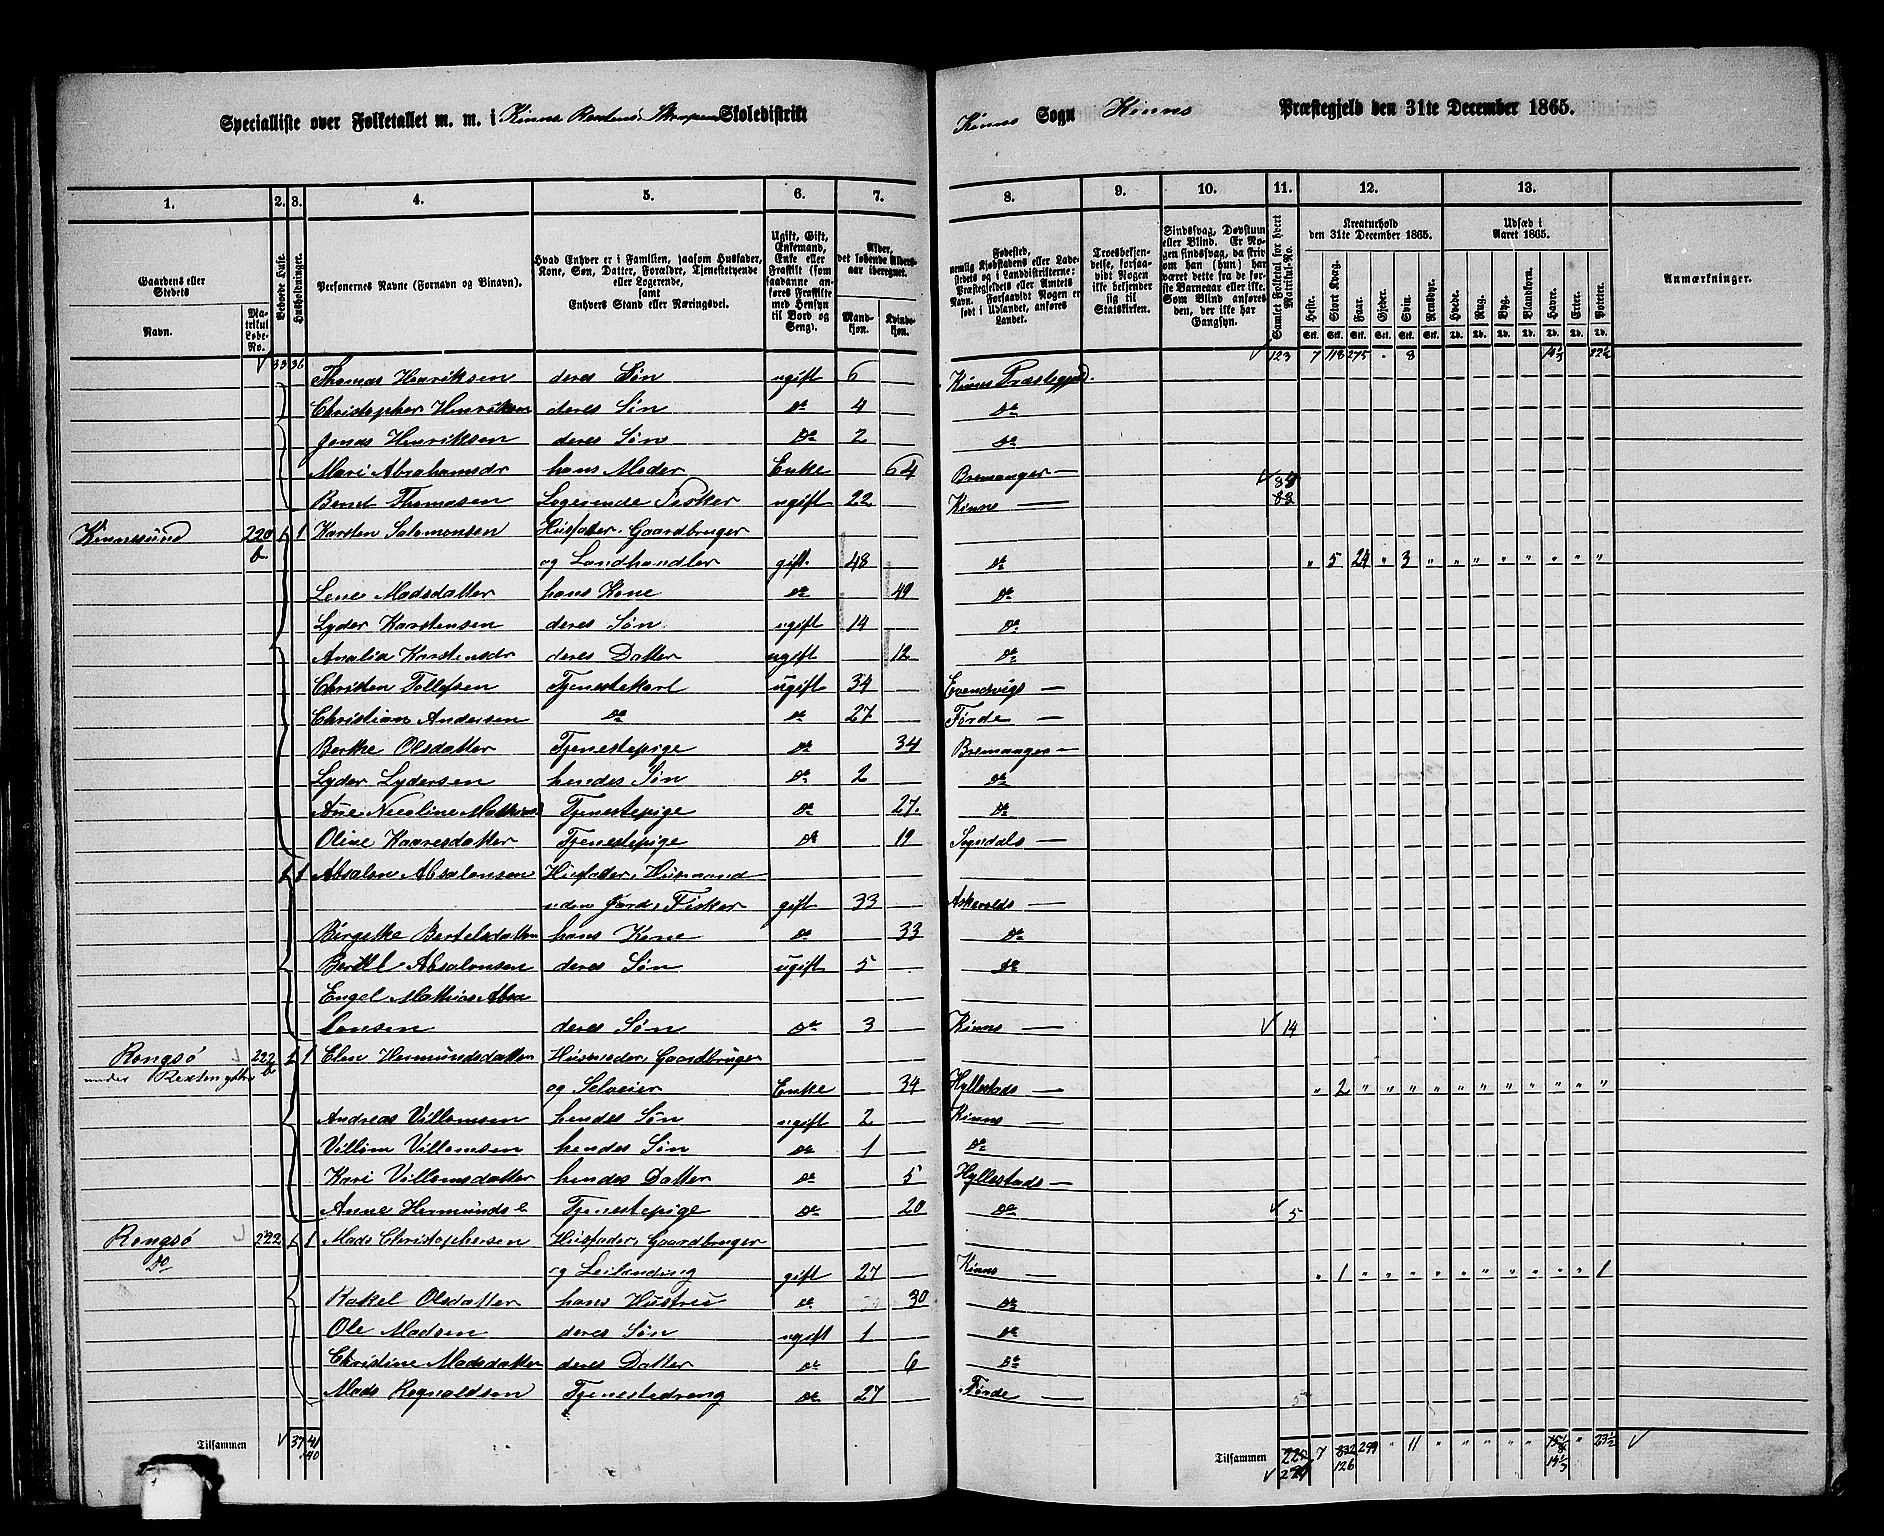 Specialliste over Folketallet m. m. i Kinns Skoledistrikt
Kinns Sogn Kinns Præstegjeld den 31te December 1865.
1. 2. 3. 4. 5. 6. 7. 8. 9. 10. 11. 12. 13.
Gaardens eller Stedets
Navn.
Matrikul Løbe-No.
Beboede Huse.
Husholdninger.
Personernes Navne (Fornavn og Binavn).
Hvad Enhver er i Familien, saasom Husfader, Kone, Søn, Datter, Forældre, Tjenestetyende eller Logerende, samt Enhvers Stand eller Næringsvei.
Ugift, Gift, Enkemand, Enke eller Fraskilt (som saadanne anføres Fraskilte med Hensyn til Bord og Seng).
Alder, det løbende Alders-aar iberegnet.
Mandkjøn. Kvindekjøn.
Fødested, nemlig Kjøbstadens eller Ladestedets og i Landdistrikterne: Præstegjeldets eller Amtets Navn. Forsaavidt Nogen er født i Udlandet, anføres Landet.
Troesbekjendelse, forsaavidt Nogen ikke bekjender sig til Statskirken.
Sindssvag, Døvstum eller Blind. Er Nogen sindssvag, da hvorom han (hun) har været dette fra de første Barneaar eller ikke. Som Blind anføres den, der ikke har Gangsyn.
Samlet Folketal for hvert Matrikul-No.
Kreaturhold den 31te December 1865.
Heste. Stort Kvæg. Faar. Gjeder. Svin. Rensdyr.
Udsæd i Aaret 1865.
Hvede. Rug. Byg. Blandkorn. Havre. Erter. Poteter.
Anmærkninger.
33 36 Thomas Henriksen deres Søn ugift 6 Kinns Præstegjeld. 123 7 118 275 " 8
Christopher Henriksen deres Søn do 4 do
Jonas Henriksen deres Søn do 2 do
Mari Abrahamsdr hans Moder Enke 64 Bremanger
Bernt Thomasen Logerende Fisker ugift 22 Kinns
Kinnesund 220 b 1 1 Karsten Salomonsen Husfader, Gaardbruger
og Landhandler gift. 48 do " 5 24 " 3 " " " " " " " "
Lene Madsdatter hans Kone do 49 do
Lyder Karstensen deres Søn ugift 14 do
Analia Karstensdr deres Datter ugift 12 do
Christen Tollefsen Tjenestekarl ugift 34 Evendvigs
Christian Andersen do do 27 Førde
Berthe Olsdatter Tjenestepige do 34 Bremanger
Lyder Lydersen hendes Søn do 2 do
Ane Nicoline Mathias Tjenestepige do 27. do
Oline Kaaresdatter Tjenestepige do 19 Sogndals
1 1 Absalon Absalonsen Husfader, Husmand
uden Jord, Fisker gift 33 Askevolds
Birgethe Bertelsdatter hans Kone do 33 do
Bertel Absalonsen deres Søn ugift 5 do
Engel Mathias Absa
lonsen deres Søn do 3 Kinns 14
Rongsø 222 b 1 1 Elen Hermundsdatter Husmoder, Gaardbruger
under Rexten
og Selveier Enke 34 Hyllestads " 2 " " " " " " " " " " "
Andreas Villomsen hendes Søn ugift 2 Kinns
Villom Villomsen hendes Søn do 1 do
Kari Villomsdatter hendes Datter do 5 Hyllestads
Anne Hermunds Tjenestepige do 20 do 5
Rongsø 222 1 1 Mads Christophersen Husfader, Gaardbruger
Do
og Leilænding gift 27 Kinns " 1 " " " " " " " " " " 1
Rakel Olsdatter hans Hustru do 30 do
Ole Madsen deres Søn ugift 1 do
Christine Madsdatter deres Datter do 6 do
Mads Rognaldsen Tjenestedreng do 27 Førde 5
Tilsammen 37 41
40
Tilsammen 7 299 " 11 " " " " " " 23½
126